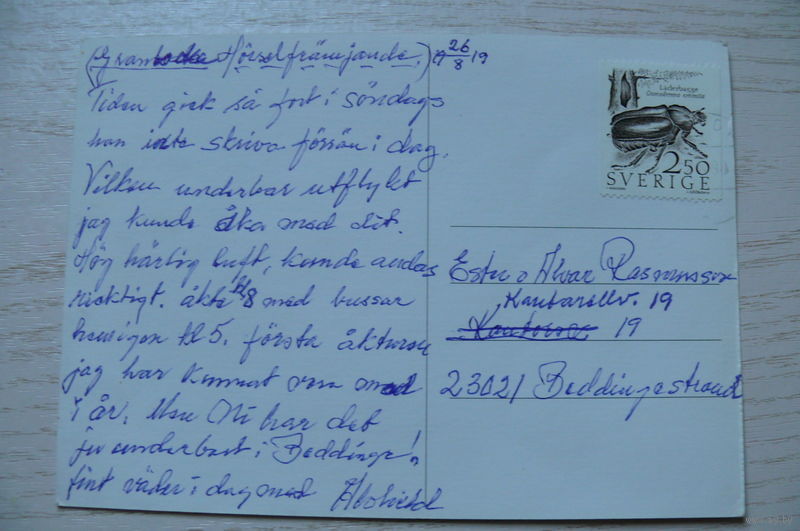 Hörselfrämjande.) 26/8 19
Tiden gick så fort i söndags
han inte skriva förrän i dag.
Vilken underbar utflykt
jag kunde åka med dit.
Hög härlig luft, kunde andas
ricktigt. åkte kl 8 med bussar
hem igen kl 5. första åkturen
jag har kunnat vara med
i år. Men Ni har det
ju underbart i Beddinge!
fint väder i dag med
Läderbagge
Osmoderma eremita
2.50
SVERIGE
Ester o Alvar Rasmusson
Kantarellv. 19
19
23021 Beddingestrand